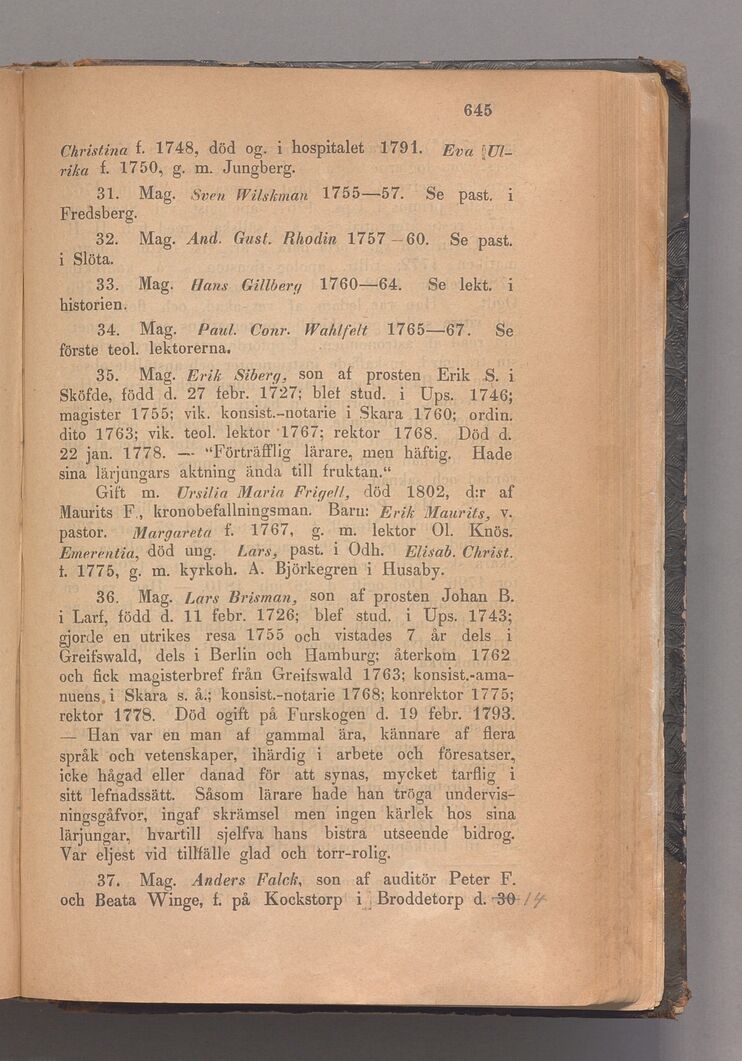 645
Christina f. 1748, död og. i hospitalet 1791. Eva Ul-
rika f. 1750, g. m. Jungberg.
31. Mag. Sven Wilskman 1755—57. Se past. i
Fredsberg.
32. Mag. And. Gust. Rhodin 1757—60. Se past.
i Slöta.
33. Mag. Hans Gillberg 1760—64. Se lekt. i
historien.
34. Mag. Paul. Conr. Wahlfelt 1765—67. Se
förste teol. lektorerna.
35. Mag. Erik Siberg, son af prosten Erik S. i
Sköfde, född d. 27 febr. 1727; blef stud. i Ups. 1746;
magister 1755; vik. konsist.-notarie i Skara 1760; ordin.
dito 1763; vik. teol. lektor 1767; rektor 1768. Död d.
22 jan. 1778. — “Förträfflig lärare, men häftig. Hade
sina lärjungars aktning ända till fruktan.“
Gift m. Ursilia Maria Frigell, död 1802, d:r af
Maurits F., kronobefallningsman. Barn: Erik Maurits, v.
pastor. Margareta f. 1767, g. m. lektor Ol. Knös.
Emerentia, död ung. Lars, past. i Odh. Elisab. Christ.
f. 1775, g. m. kyrkoh. A. Björkegren i Husaby.
36. Mag. Lars Brisman, son af prosten Johan B.
i Larf, född d. 11 febr. 1726; blef stud. i Ups. 1743;
gjorde en utrikes resa 1755 och vistades 7 år dels i
Greifswald, dels i Berlin och Hamburg; återkom 1762
och fick magisterbref från Greifswald 1763; konsist.-ama-
nuens i Skara s. å.; konsist.-notarie 1768; konrektor 1775;
rektor 1778. Död ogift på Furskogen d. 19 febr. 1793.
— Han var en man af gammal ära, kännare af flera
språk och vetenskaper, ihärdig i arbete och föresatser,
icke hågad eller danad för att synas, mycket tarflig i
sitt lefnadssätt. Såsom lärare hade han tröga undervis-
ningsgåfvor, ingaf skrämsel men ingen kärlek hos sina
lärjungar, hvartill sjelfva hans bistra utseende bidrog.
Var eljest vid tillfälle glad och torr-rolig.
37. Mag. Anders Falck, son af auditör Peter F.
och Beata Winge, f. på Kockstorp i Broddetorp d. 30 14